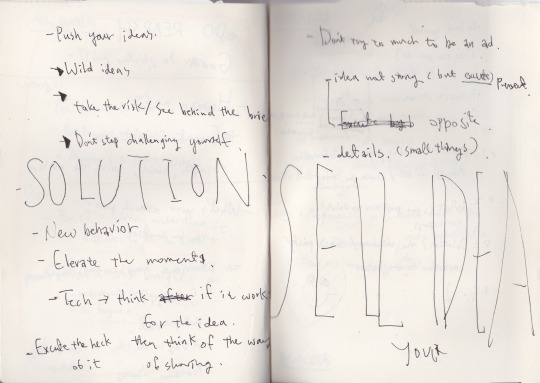 - Push your ideas.
→ Wild ideas
→ take the risk / See behind the brie
→ Don't stop challenging yourself.
- SOLUTION.
- New behavior
- Elevate the moments.
→ Tech → think after if it works
for the idea.
- Excute the heck then think of the way
of it of sharing.
- Don't try so much to be an ad.
- idea not strong (but excute) Present
opposite.
- details. (small things)
SELL IDEA
YOUR